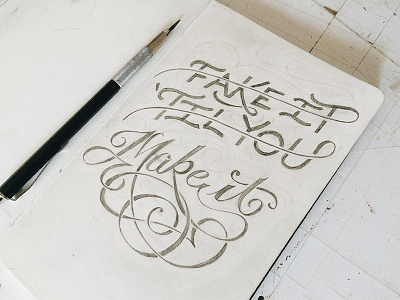 FAKE IT
'TIL YOU
Make it